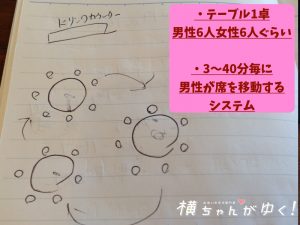 ドリンクカウンター
・テーブル1卓
男性6人女性6人ぐらい
・3〜40分毎に
男性が席を移動する
システム
横ちゃんがゆく!